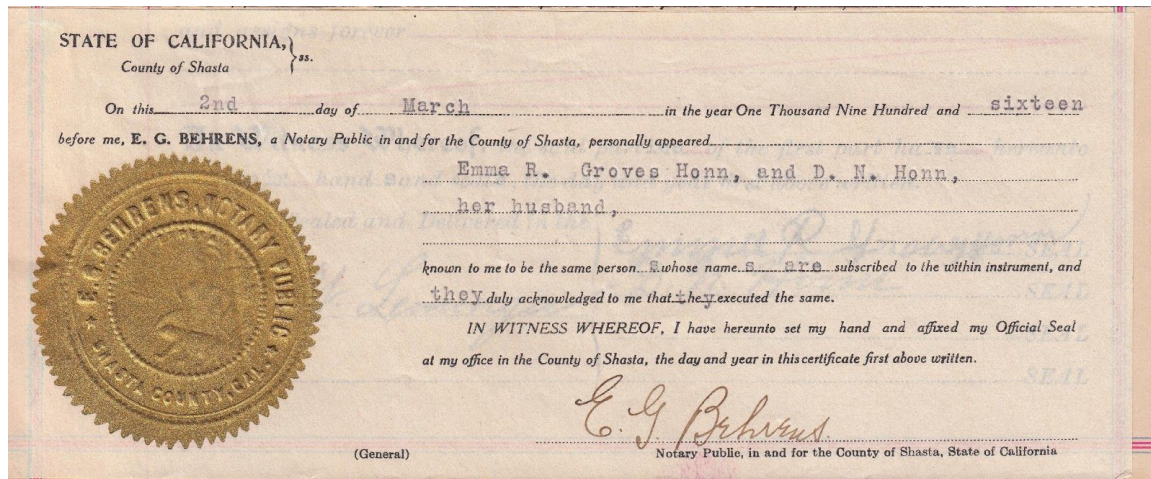 STATE OF CALIFORNIA, } ss.
County of Shasta
On this 2nd day of March in the year One Thousand Nine Hundred and sixteen
before me, E. G. BEHRENS, a Notary Public in and for the County of Shasta, personally appeared
Emma R. Groves Honn, and D. N. Honn,
her husband,
known to me to be the same person s whose name s are subscribed to the within instrument, and
they duly acknowledged to me that they executed the same.
IN WITNESS WHEREOF, I have hereunto set my hand and affixed my Official Seal
at my office in the County of Shasta, the day and year in this certificate first above written.
E. G. BEHRENS, NOTARY PUBLIC
SHASTA COUNTY, CAL.
E. G. Behrens
(General)
Notary Public, in and for the County of Shasta, State of California